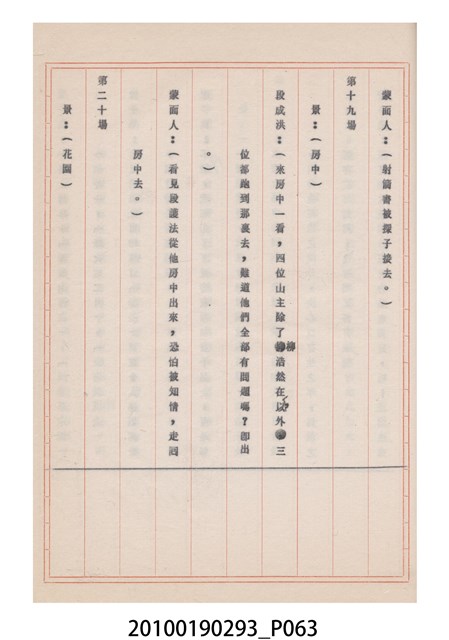 蒙面人：（射箭書被探子接去。）
第十九場
景：（房中）
段成洪：（來房中一看，四位山主除了柳浩然在以外，三
位都跑到那裏去，難道他們全部有問題嗎？卽出
。）
蒙面人：（看見段護法從他房中出來，恐怕被知情，走囘
房中去。）
第二十場
景：（花園）
20100190293_P063